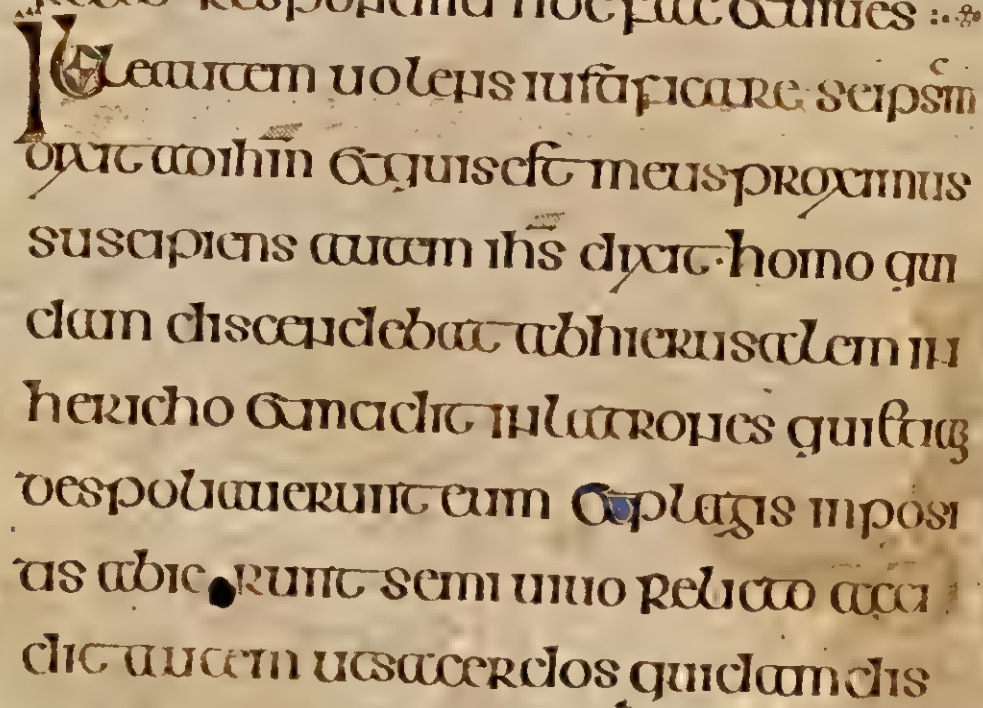 respondisti hoc fac et uiues
Ille autem uolens iustificare seipsm
dixit ad ihm et quis est meus proximus
suscipiens autem ihs dixit homo qui
dam discendebat ab hierusalem in
hericho et incidit in latrones qui etiaq;
despoliauerunt eum et plagis inposi
tis abierunt semi uiuo relicto acci
dit autem ut sacerdos quidam dis